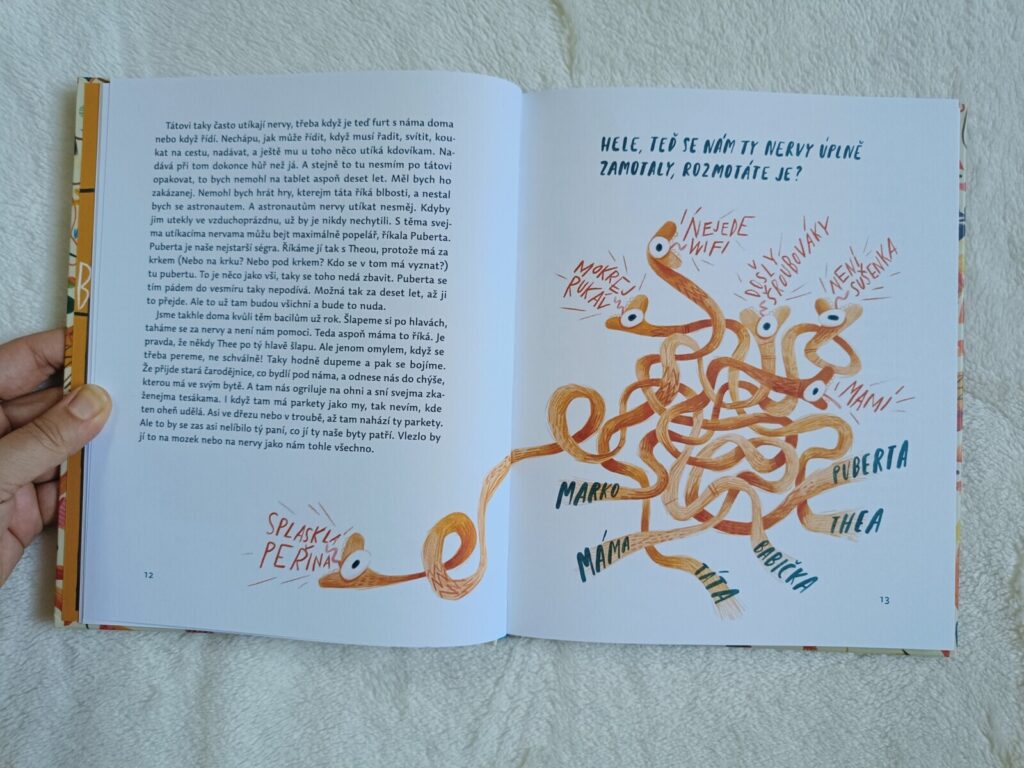 Tátovi taky často utíkají nervy, třeba když je teď furt s náma doma
nebo když řídí. Nechápu, jak může řídit, když musí řadit, svítit, kou-
kat na cestu, nadávat, a ještě mu u toho něco utíká kdovíkam. Na-
dává při tom dokonce hůř než já. A stejně to tu nesmím po tátovi
opakovat, to bych nemohl na tablet aspoň deset let. Měl bych ho
zakázanej. Nemohl bych hrát hry, kterejm táta říká blbosti, a nestal
bych se astronautem. A astronautům nervy utíkat nesměj. Kdyby
jim utekly ve vzduchoprázdnu, už by je nikdy nechytili. S těma svej-
ma utíkacíma nervama můžu bejt maximálně popelář, říkala Puberta.
Puberta je naše nejstarší ségra. Říkáme jí tak s Theou, protože má za
krkem (Nebo na krku? Nebo pod krkem? Kdo se v tom má vyznat?)
tu pubertu. To je něco jako vši, taky se toho nedá zbavit. Puberta se
tím pádem do vesmíru taky nepodívá. Možná tak za deset let, až jí
to přejde. Ale to už tam budou všichni a bude to nuda.
Jsme takhle doma kvůli těm bacilům už rok. Šlapeme si po hlavách,
taháme se za nervy a není nám pomoci. Teda aspoň máma to říká. Je
pravda, že někdy Thee po tý hlavě šlapu. Ale jenom omylem, když se
třeba pereme, ne schválně! Taky hodně dupeme a pak se bojíme.
Že přijde stará čarodějnice, co bydlí pod náma, a odnese nás do chýše,
kterou má ve svým bytě. A tam nás ogriluje na ohni a sní svejma zka-
ženejma tesákama. I když tam má parkety jako my, tak nevím, kde
ten oheň udělá. Asi ve dřezu nebo v troubě, až tam nahází ty parkety.
Ale to by se zas asi nelíbilo tý paní, co jí ty naše byty patří. Vlezlo by
jí to na mozek nebo na nervy jako nám tohle všechno.
SPLASKLÁ
PEŘINA
12
HELE, TEĎ SE NÁM TY NERVY ÚPLNĚ
ZAMOTALY, ROZMOTÁTE JE?
NEJEDE
WIFI
MOKREJ
RUKÁV
DOŠLY
ŠROUBOVÁKY
NENÍ
SUŠENKA
MAMI
MARKO
PUBERTA
THEA
MÁMA
BABIČKA
TÁTA
13